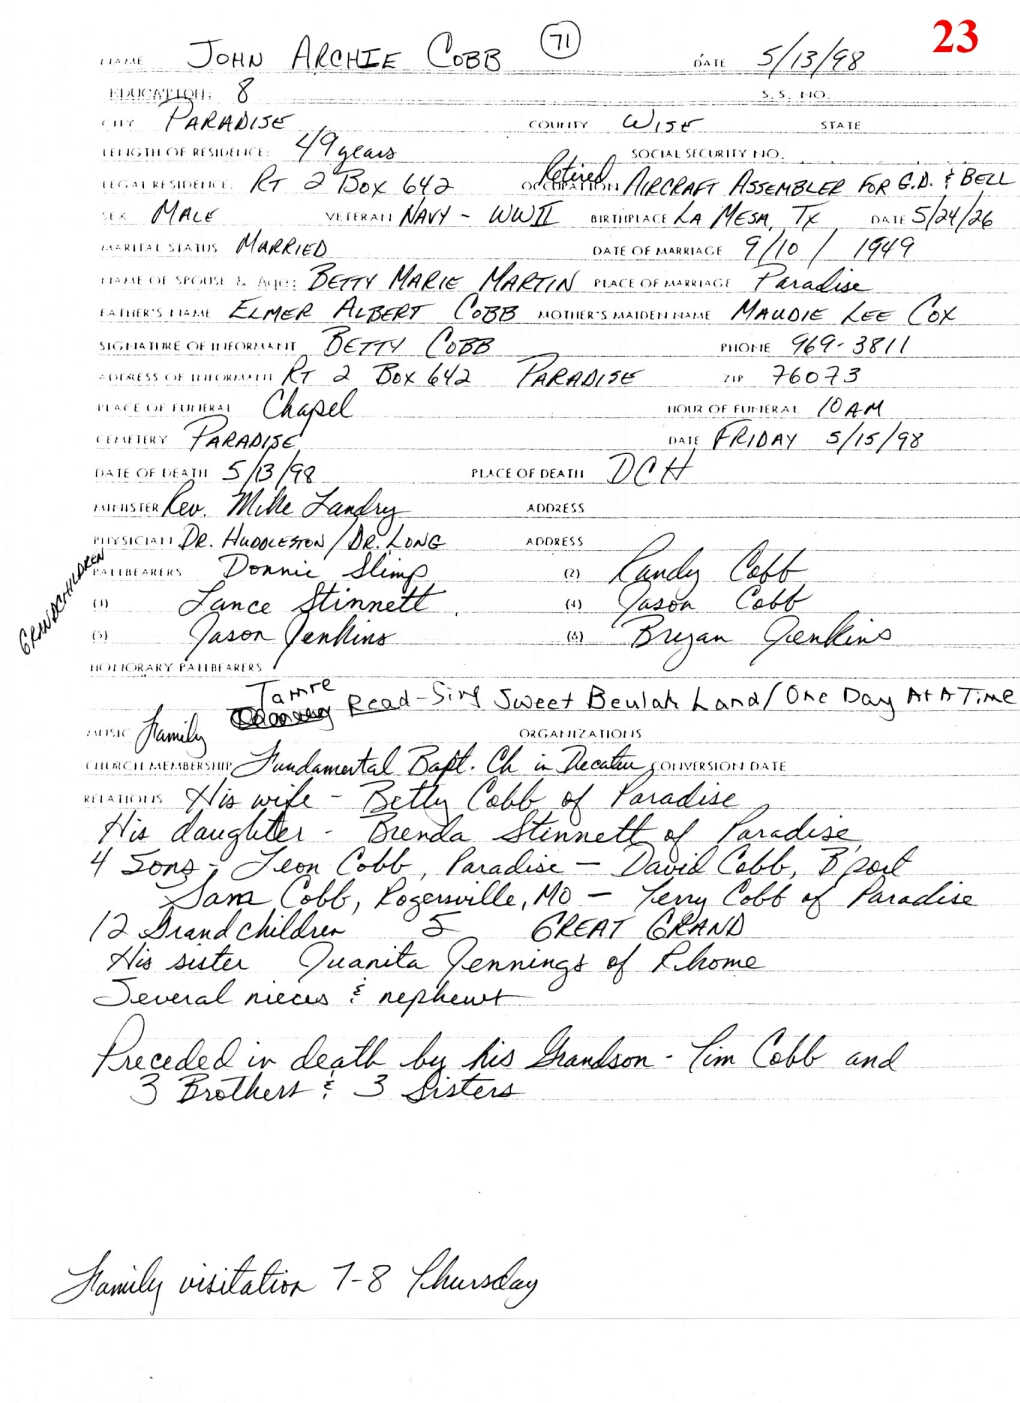 23
NAME JOHN ARCHIE COBB 71 DATE 5/13/98
EDUCATION: 8 S.S. NO.
CITY PARADISE COUNTY WISE STATE
LENGTH OF RESIDENCE: 49 years SOCIAL SECURITY NO.
LEGAL RESIDENCE: RT 2 BOX 642 OCCUPATION Retired AIRCRAFT ASSEMBLER FOR G.D. & BELL
SEX MALE VETERAN NAVY - WWII BIRTHPLACE LA MESA, TX DATE 5/24/26
MARITAL STATUS MARRIED DATE OF MARRIAGE 9/10/1949
NAME OF SPOUSE & Age: BETTY MARIE MARTIN PLACE OF MARRIAGE Paradise
FATHER'S NAME ELMER ALBERT COBB MOTHER'S MAIDEN NAME MAUDIE LEE COX
SIGNATURE OF INFORMANT BETTY COBB PHONE 969-3811
ADDRESS OF INFORMANT RT 2 BOX 642 PARADISE ZIP 76073
PLACE OF FUNERAL Chapel HOUR OF FUNERAL 10 AM
CEMETERY PARADISE DATE FRIDAY 5/15/98
DATE OF DEATH 5/13/98 PLACE OF DEATH DCH
MINISTER Rev. Mike Landry ADDRESS
PHYSICIAN DR. HUDDLESTON / DR. LONG ADDRESS
GRANDCHILDREN
PALLBEARERS Donnie Slimp (2) Randy Cobb
(3) Lance Stinnett (4) Jason Cobb
(5) Jason Jenkins (6) Bryan Jenkins
HONORARY PALLBEARERS
Tamre Read-Sing Sweet Beulah Land/One Day At A Time
MUSIC Family ORGANIZATIONS
CHURCH MEMBERSHIP Fundamental Bapt. Ch in Decatur CONVERSION DATE
RELATIONS His wife - Betty Cobb of Paradise
His daughter - Brenda Stinnett of Paradise
4 Sons - Leon Cobb, Paradise - David Cobb, B'port
Sam Cobb, Rogersville, MO - Terry Cobb of Paradise
12 Grandchildren 5 GREAT GRAND
His sister Juanita Jennings of Rhome
Several nieces & nephews
Preceded in death by his Grandson - Tim Cobb and
3 Brothers & 3 Sisters
Family visitation 7-8 Thursday